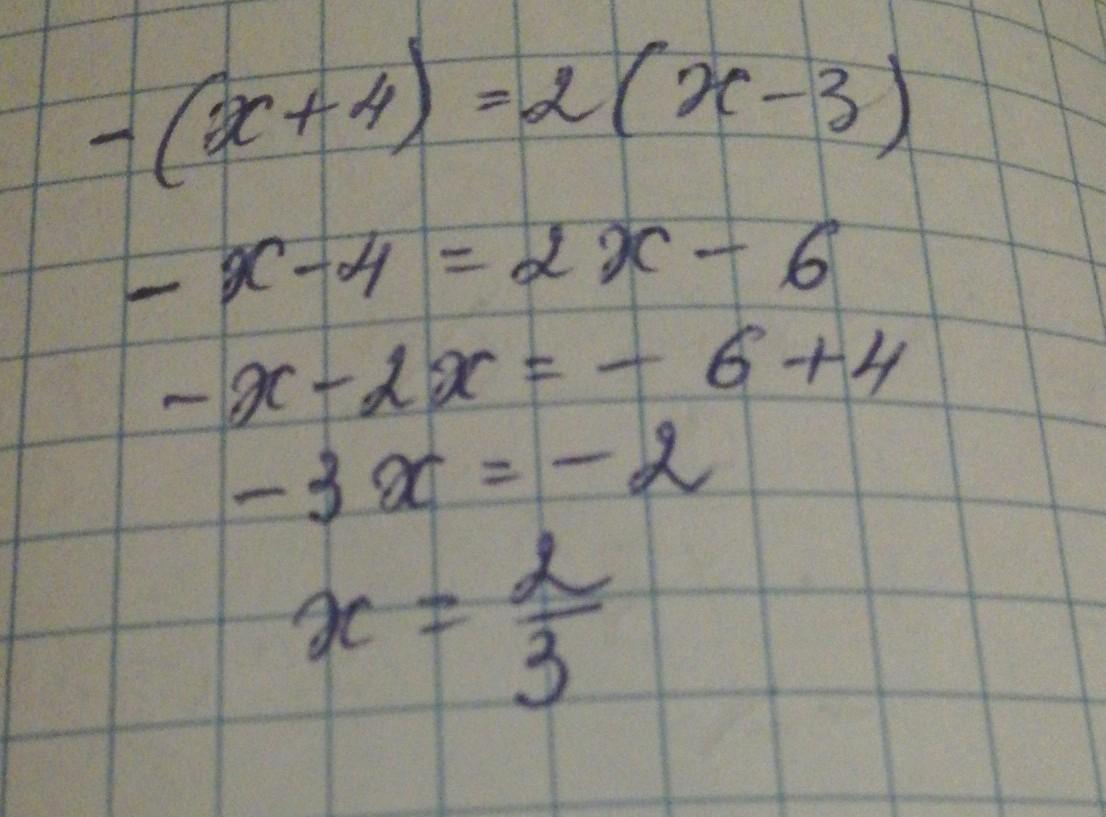 -(x+4)=2(x-3)
-x-4=2x-6
-x-2x=-6+4
-3x=-2
x=2/3